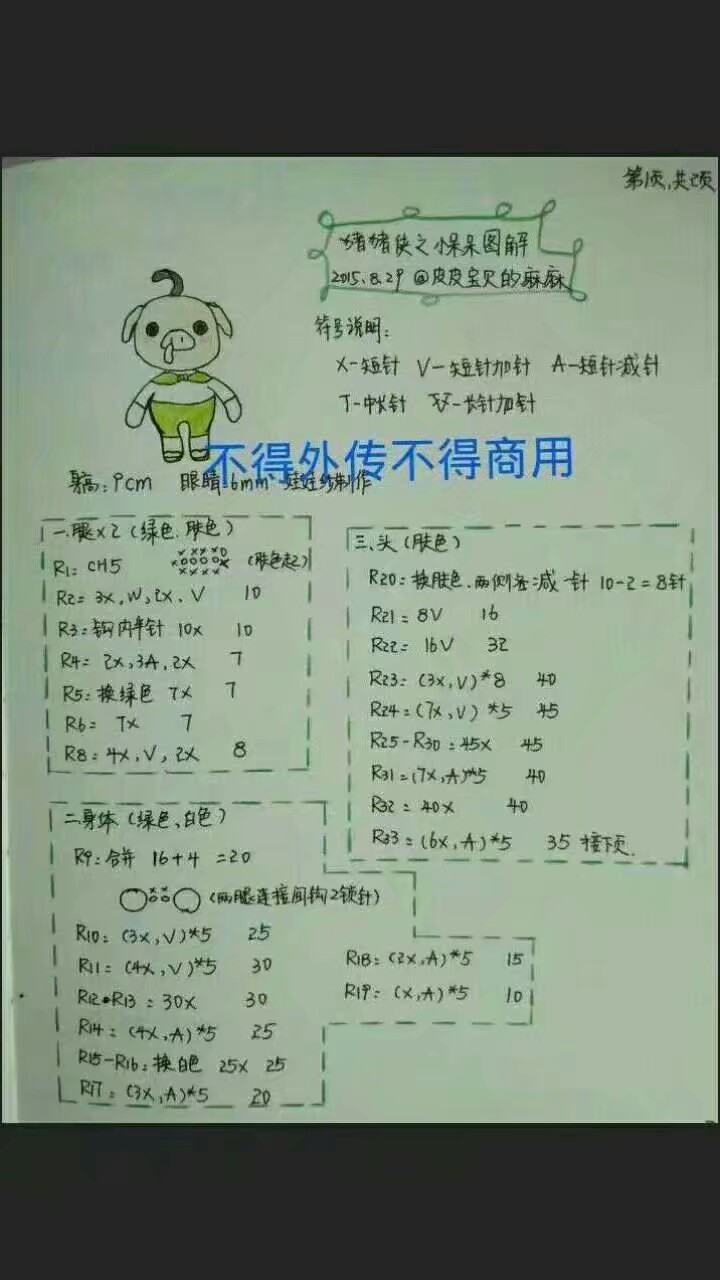 第1页,共2页
猪猪侠之小呆呆图解
2015.8.29 @皮皮宝贝的麻麻
符号说明:
X-短针 V-短针加针 A-短针减针
T-中长针 -长针加针
不得外传不得商用
身高:9cm 眼睛:6mm 制作
一.腿×2(绿色.肤色)
R1: CH5 (肤色起)
R2= 3X,W,2X.V 10
R3:钩内半针 10X 10
R4= 2X,3A,2X 7
R5:换绿色 7X 7
R6= 7X 7
R8: 4X,V,2X 8
二.身体(绿色、白色)
R9:合并 16+4 =20
(两腿连接间钩2锁针)
R10: (3X,V)*5 25
R11: (4X,V)*5 30
R12•R13 = 30X 30
R14: (4X,A)*5 25
R15-R16:换白色 25X 25
R17: (3X,A)*5 20
R18: (2X,A)*5 15
R19: (X,A)*5 10
三.头(肤色)
R20:换肤色.两侧各减一针 10-2=8针
R21= 8V 16
R22= 16V 32
R23: (3X,V)*8 40
R24=(7X,V)*5 45
R25-R30=45X 45
R31=(7X,A)*5 40
R32= 40X 40
R33=(6X,A)*5 35 接下页.